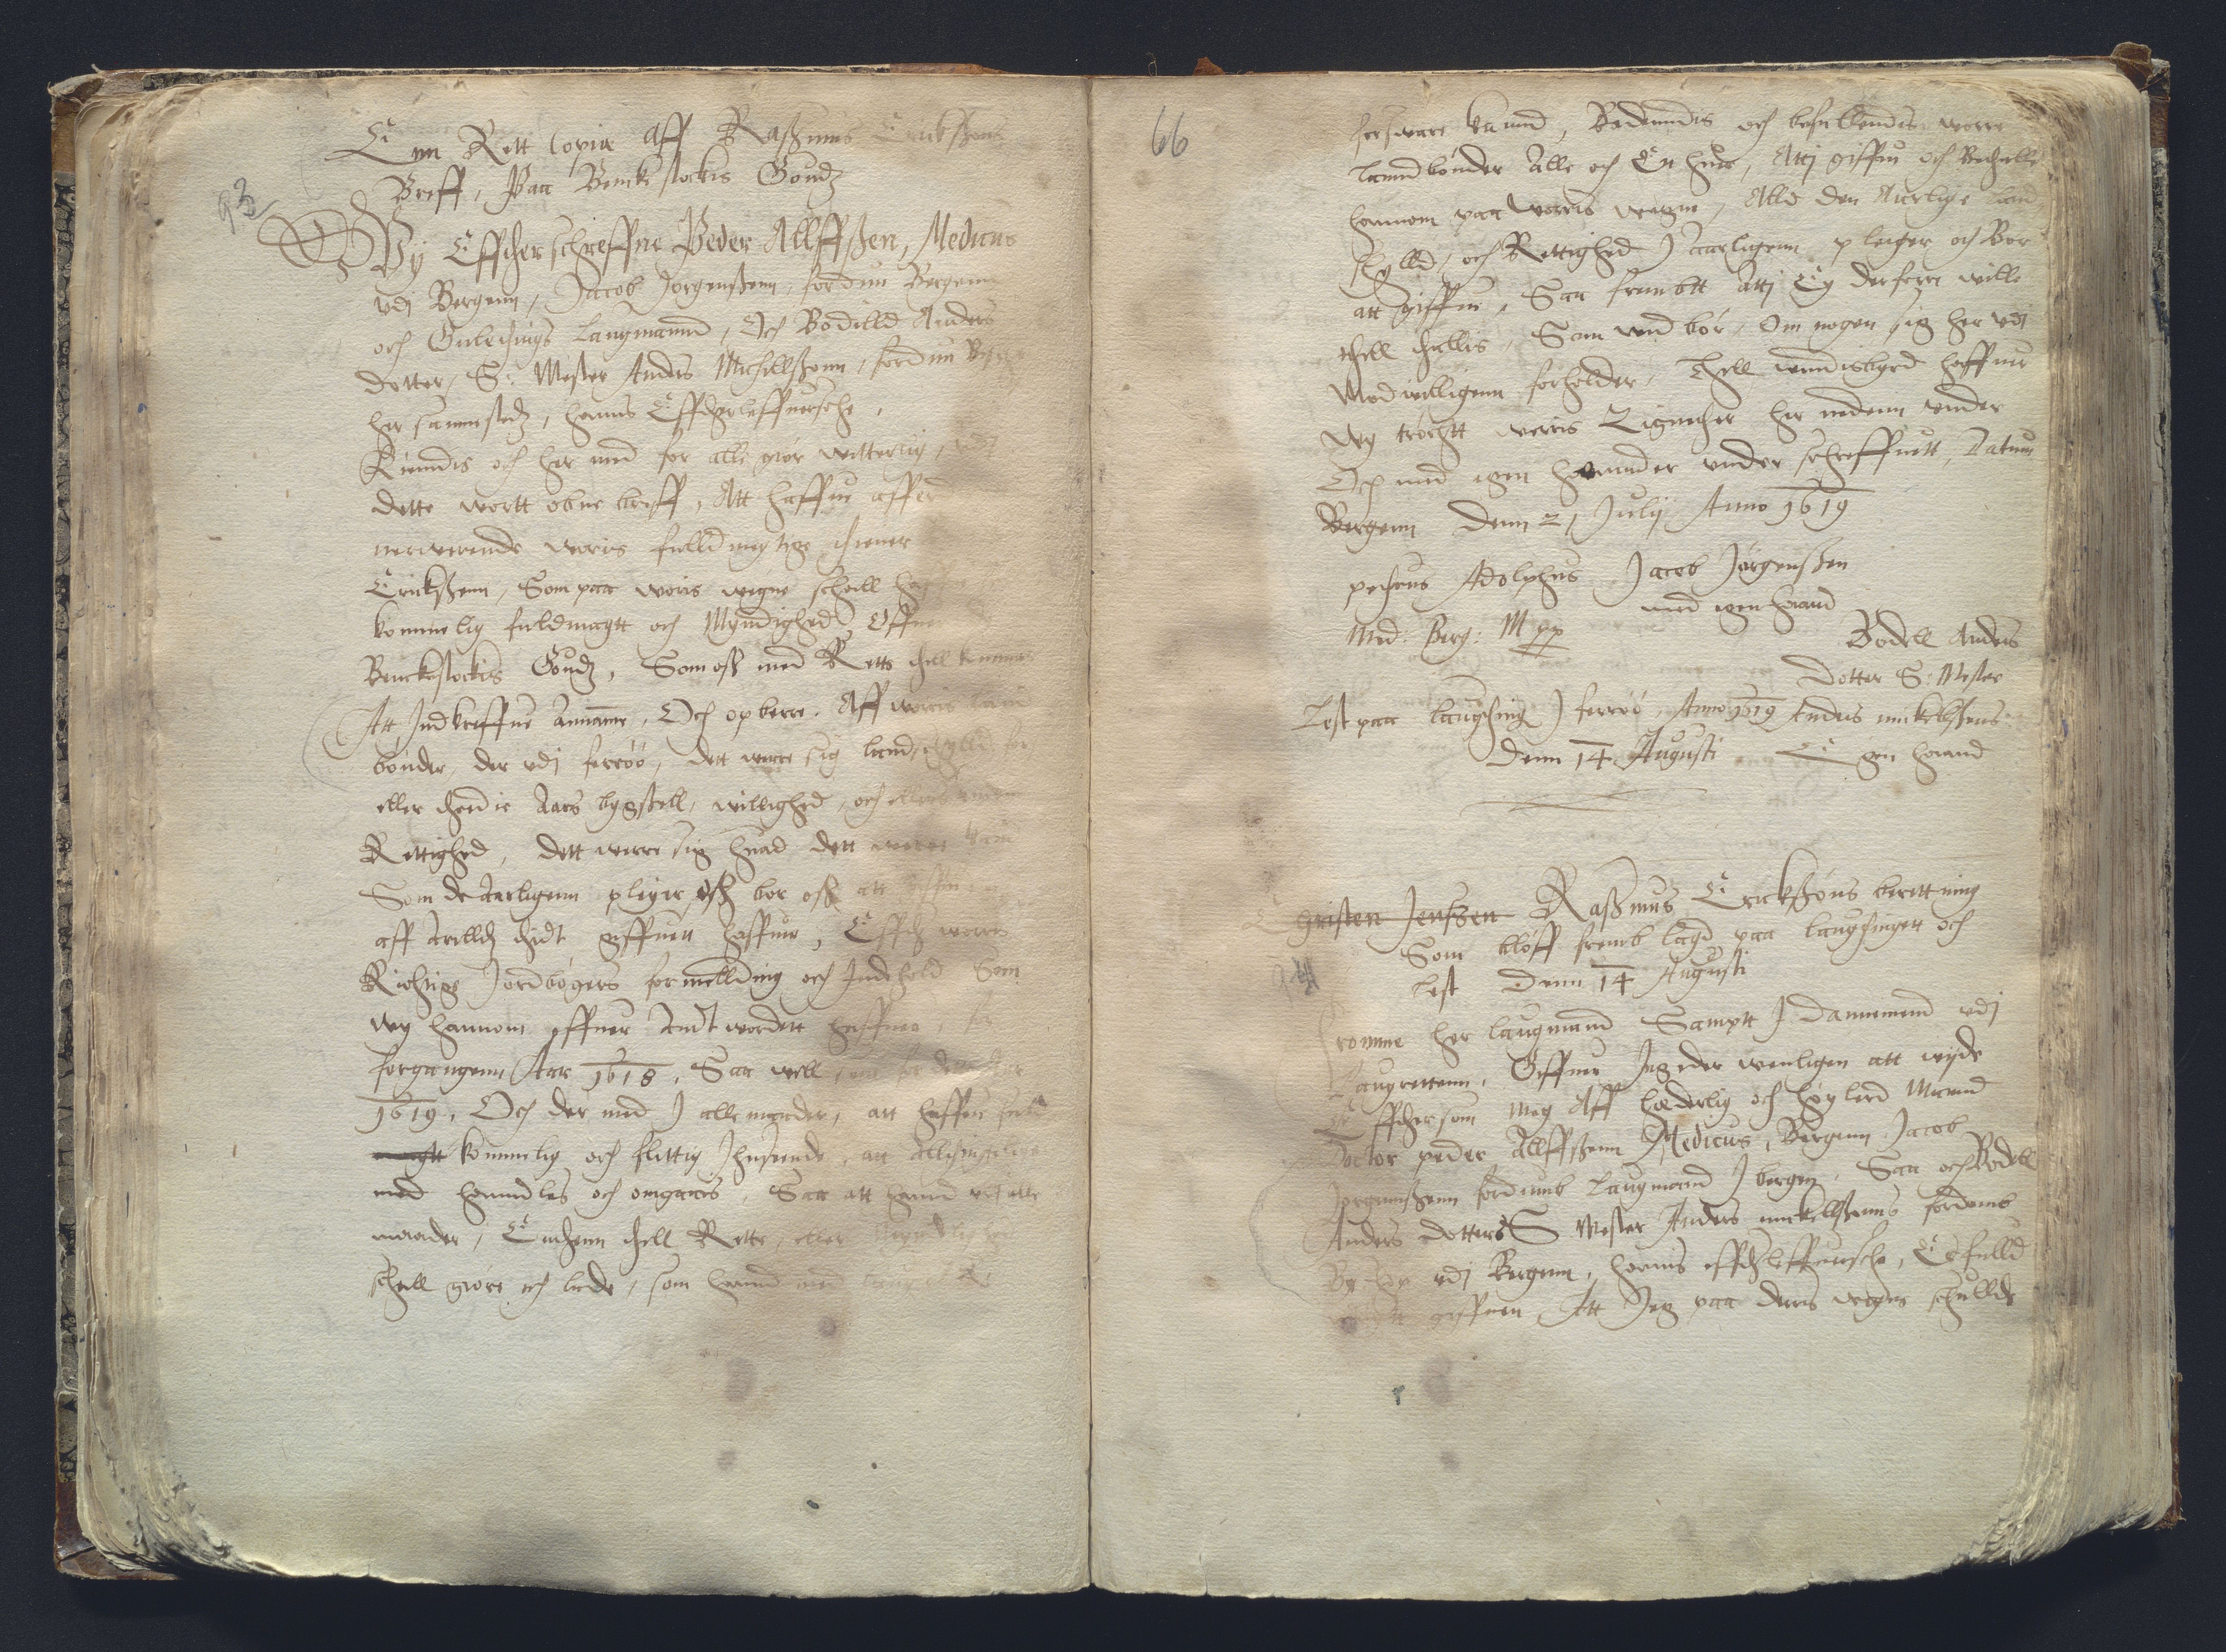 93
Enn Rett Copia Aff Raßmus Erickßens
Breff, Paa Benckestockis Goudz
Wy Effther schreffne Peder Allffßen, Medicus
vdj Bergenn, Jacob Jorgenßenn, fordum Bergens
och Gulethings Laugmannd, Och Bodilld Anders
dotter, S: Mester Anders Michillßonn, fordum
her sammstedz, hanns Effther leffuersche,
Kiendis och her med for alle giør witterlig, vdj
dette wortt obne breff, Att haffue
nerwerende woris fulldmegtige thiener
Erickßenn, Som paa woris wegne schall
kommelig fuldmagtt och Myndighed Offuer
Benckestockis Goudz, Som oß med Rette thill kommer
Att Indkreffue Annamme, Och opberre. Aff woris land
bønder, der vdj ferrøø, dett werre sig landschylld
eller thredie Aars bygßell, willighed, och
Rettighed, dett werre sig huad dett werre kand
Som de Aarligenn pleyer och bør oß att
aff Arrilldz thidt giffuen haffuer, Effther worris
Richtige Jordbøgers formellding och Indehold Som
wy hannom offuer Andtwordett haffuer, for
forgangenn Aar 1618, Saa well som for dette Aar
1619, Och der med J alle maader, att haffue fuld
magtt kommelig och flittig Jndseende, att
med handles och omgaaes, Saa att hannd vdj alle
maader, Enthenn thill Rette, eller
schall giøre och lade, som hannd med
66
forsware kannd, Bedendis och befallendis worre
lanndbønder Alle och En huer, Attj giffue och Bethalle
hannom paa worris wegne, Alld den Aarlige land
schylld, och Rettighed J aarligenn pleyer och Bør
att giffue, Saa frembtt Attj Ey derforre wille
thill thallis, Som wed bør, Om nogen sig her vdj
Modwilligenn forholder, Thill windisbyrd haffuer
wy tröchtt worris Zignether her nedenn vnder
Och med egen haannder vnder schreffuett, Datum
Bergenn denn 2, Julij Anno 1619
petrus Adolphus Jacob Jørgenßen
Med: Berg: Mpp med egen haand
Bodell Anders
dotter S: Mester
Lest paa laugting J ferröö, Anno 1619 Anders mickellßens
denn 14 Augusti Egen haand
Christen Jenßen Raßmus Erickßøns berettning
Som bløff fremb lagd paa laugthingett och
lest denn 14 Augusti
fromme her laugmand Samptt J dannemend vdj
Laugrettenn, Giffuer Jeg eder wenligen att wyde
Effthersom meg Aff hæderlig och høylerd Mannd
Doctor peder Allffßenn Medicus, Bergenn Jacob
Jorgennßenn fordumb Laugmannd J bergen, Saa och Bodell
Anders dotter S Mester Anders mickellßenns fordoms
Byschop vdj Bergenn, hanns effther leffuersche, Er fulld
magtt giffuen, Att Jeg paa deris wegne schullde